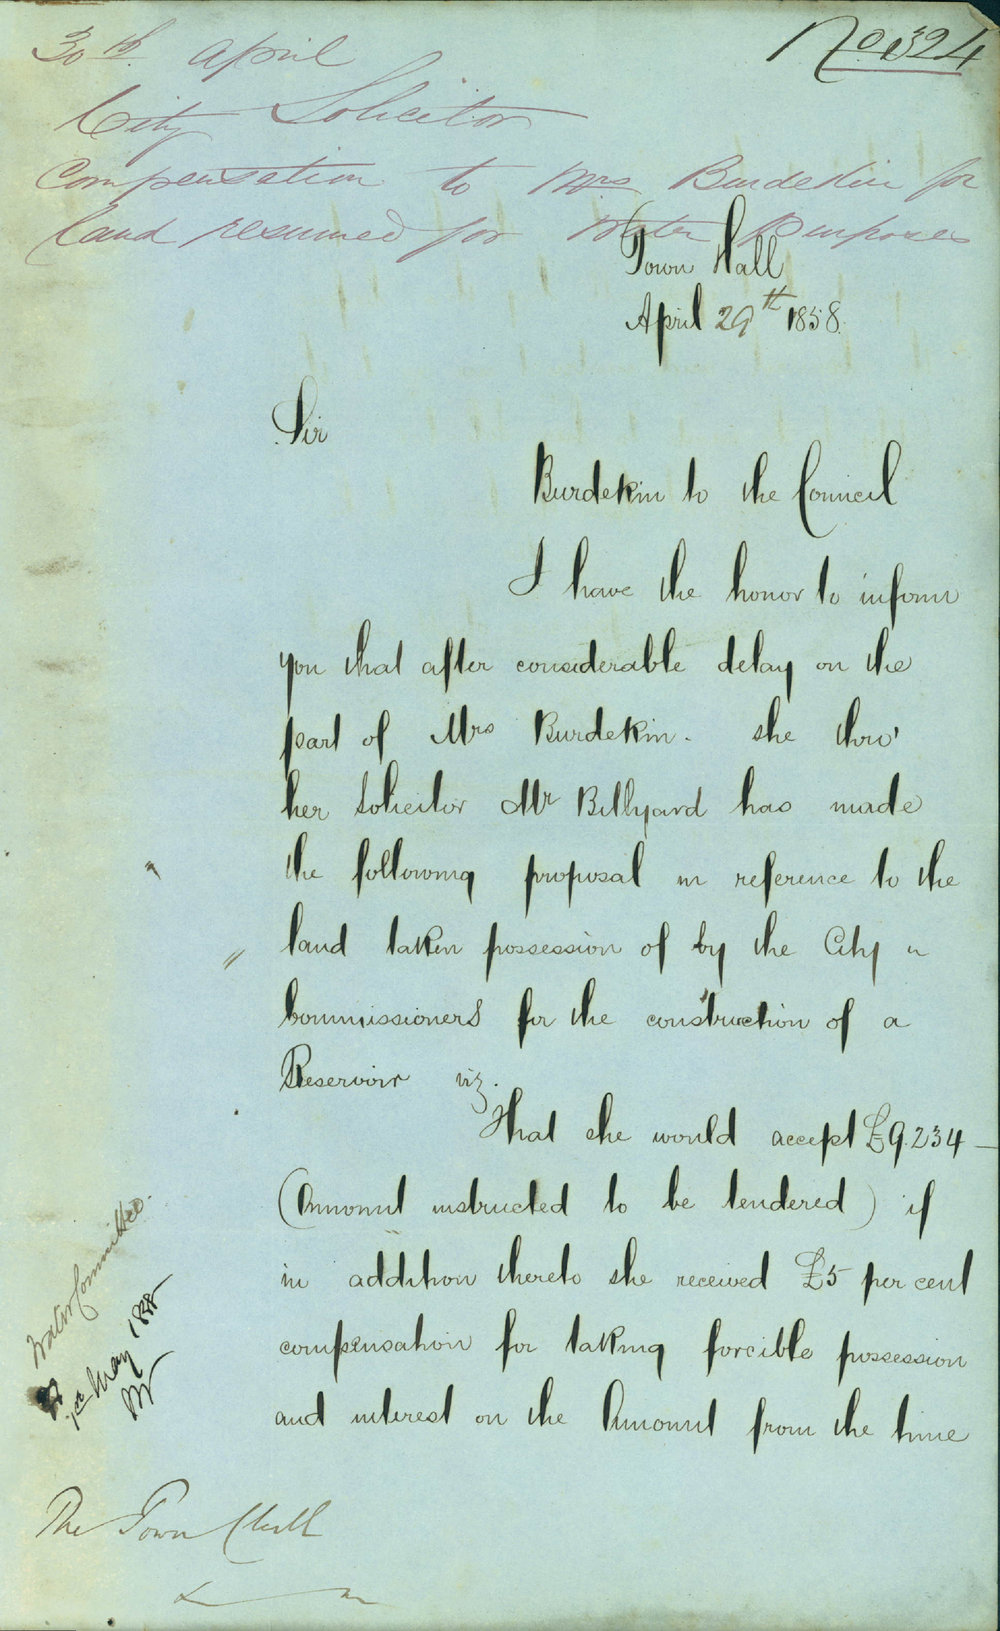 No 324
30th. April
City Solicitor
Compensation to Mrs Burdekin for
land resumed for Water Purposes
Town Hall
April 29th 1858.
Sir
Burdekin to the Council
I have the honor to inform
you that after considerable delay on the
part of Mrs Burdekin. she thro'
her Solicitor Mr Billyard has made
the following proposal in reference to the
land taken possession of by the City
Commissioners for the construction of a
Reservoir viz.
That she would accept £9.234 —
(Amount instructed to be tendered) if
in addition thereto she received £5 per cent
compensation for taking forcible possession
and interest on the Amount from the time
Water Committee.
1st May 1858
The Town Clerk